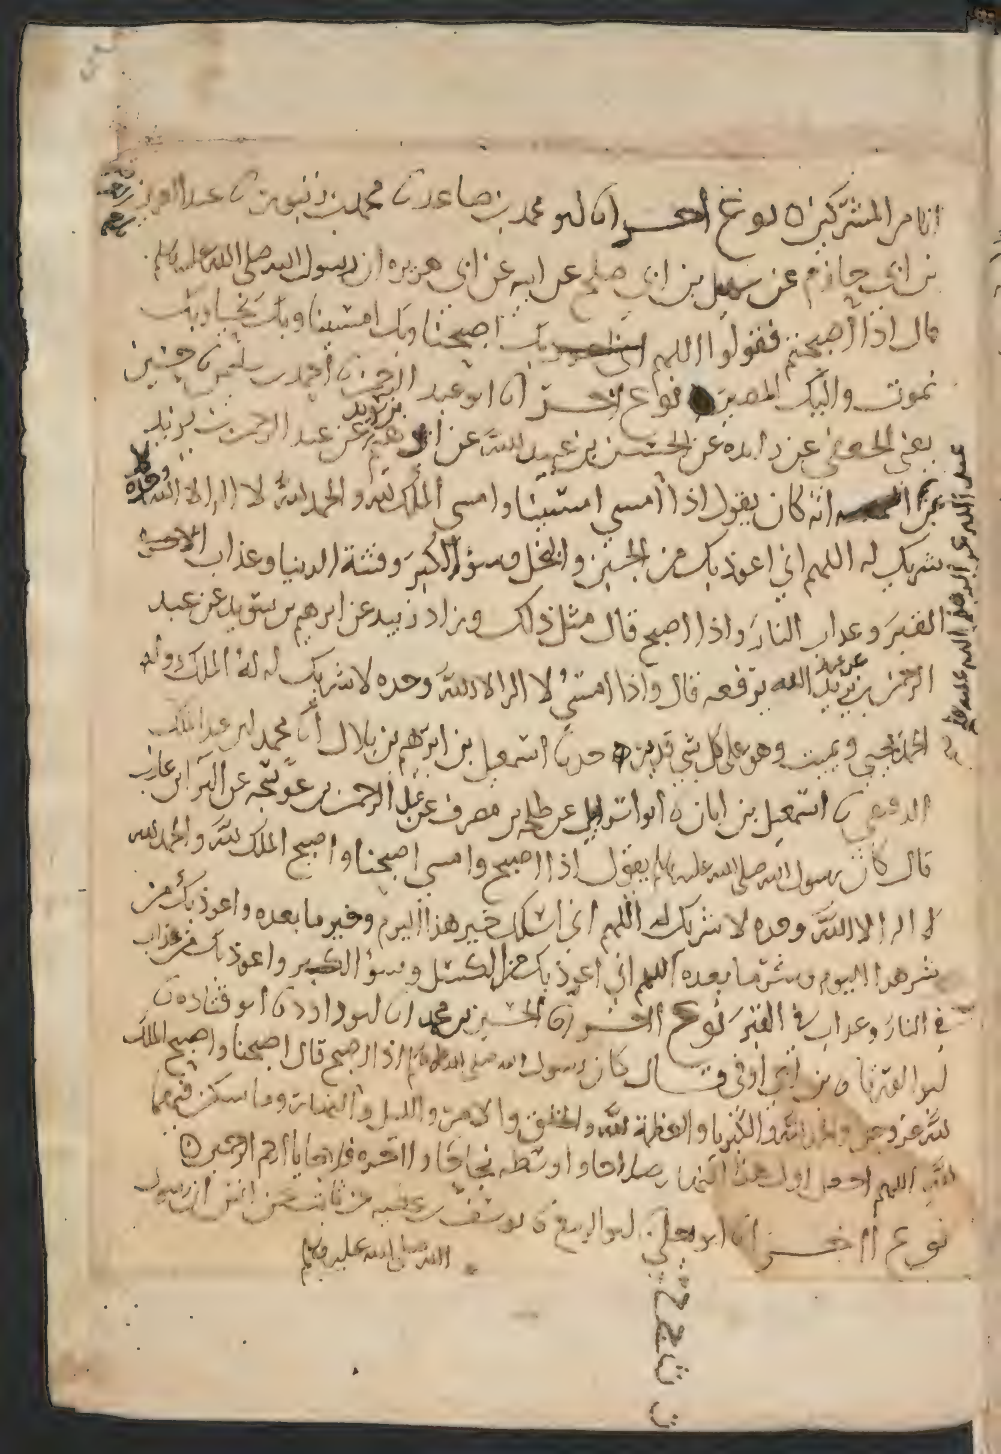 انا من المشركين نوع اخر انا ابو محمد بن صاعد نا محمد بن زنبور نا عبد العزيز
بن ابي حازم عن سهيل بن ابي صلح عن ابيه عن ابي هريره ان رسول الله صلى الله عليه وسلم
قال اذا أصبحتم فقولوا اللهم بك اصبحنا وبك امسينا وبك نحيا وبك
نموت واليك المصير نوع اخر انا ابو عبد الرحمن نا احمد بن سليمن نا حسين
يعني الجعفي عن زايده عن الحسن بن عبيد الله عن ابرهيم بن سويد عن عبد الرحمن بن يزيد
انه كان يقول اذا أمسى امسينا وامسى الملك لله والحمد لله لا اله الا الله وحده لا
شريك له اللهم اني اعوذ بك من الجبن والبخل وسؤ الكبر وفتنة الدنيا وعذاب
القبر وعذاب النار واذا اصبح قال مثل ذلك وزاد زبيد عن ابرهيم بن سويد عن عبد
الرحمن بن يزيد عن عبد الله يرفعه قال واذا امسى لا اله الا الله وحده لا شريك له له الملك وله
الحمد يحيي ويميت وهو على كل شي قدير حدثنا اسمعيل بن ابرهيم بن بلال نا محمد بن عبد الملك
الدقيقي نا اسمعيل بن ابان نا ابو اسرايل عن طلحه بن مصرف عن عبد الرحمن بن عوسجه عن البرا بن عازب
قال كان رسول الله صلى الله عليه وسلم يقول اذا اصبح وامسى اصبحنا واصبح الملك لله والحمد لله
لا اله الا الله وحده لا شريك له اللهم اني اسلك خير هذا اليوم وخير ما بعده واعوذ بك من
شر هذا اليوم وشر ما بعده اللهم اني اعوذ بك من الكسل وسؤ الكبر واعوذ بك من عذاب
في النار وعذاب في القبر نوع اخر نا الحسين بن محمد انا ابو داود نا ابو قتاده نا
ابو الورقا نا بن ابي اوفى قال كان رسول الله صلى الله عليه وسلم اذا اصبح قال اصبحنا واصبح الملك
لله عز وجل والحمد لله والكبريا والعظمة لله والخلق والامر والليل والنهار وما سكن فيهما
لله اللهم اجعل اول هذا النهار صلاحا واوسطه نجاحا واخره فلاحا يا ارحم الرحمين
نوع اخر انا ابو يعلى نا ابو الربيع نا يوسف بن عطيه عن ثابت عن انس ان رسول
الله صلى الله عليه وسلم